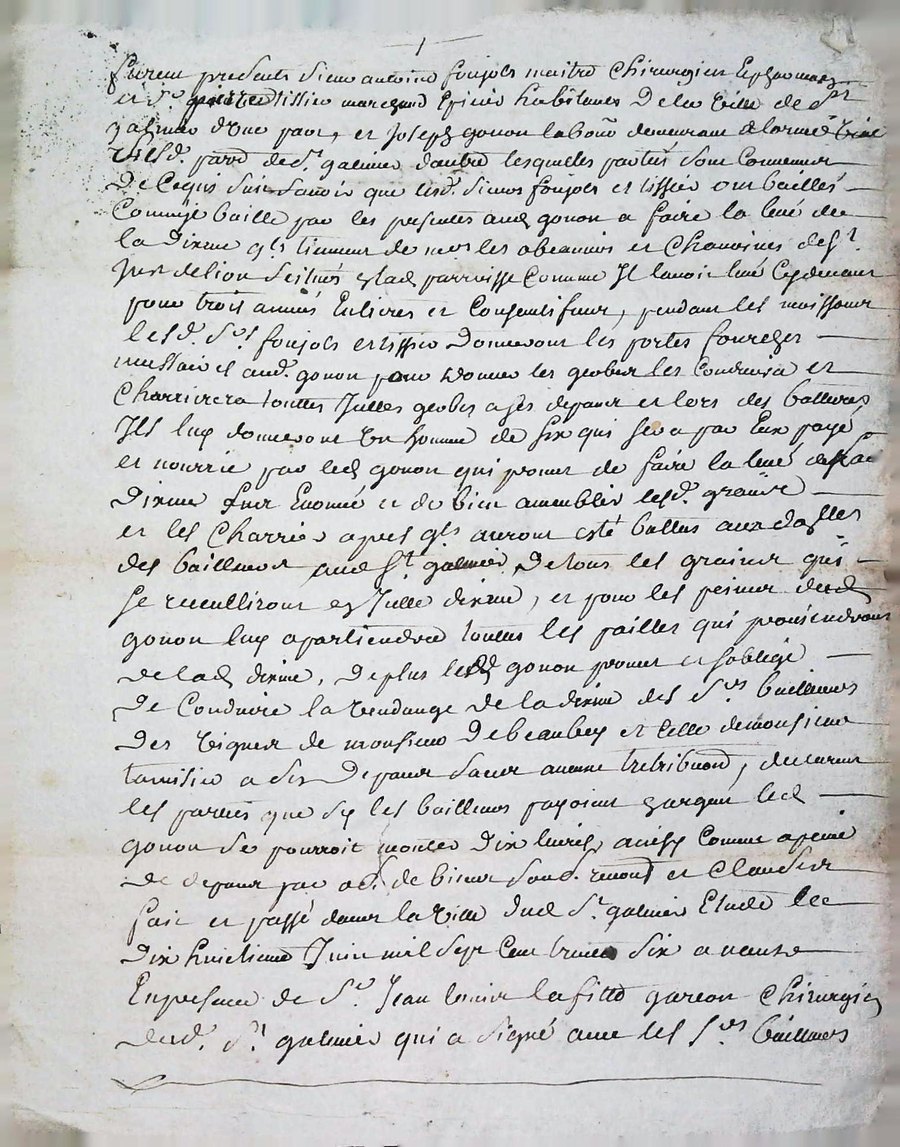 furent presents sieur antoine foujols maitre Chirurgien
et Sr tissier marchand Epicier habitants De la ville de St
galmier d'une part, et Joseph gonon labour demeurant
parr de St galmier d'autre lesquelles parties sont Convenues
De Cequis suit savoir que lesd. sieurs foujols et tissier ont baillés
Comme baille par les presentes aud gonon a faire la levé de
la Dixme qls tiennent de mrs les obeanciers et Chanoines de St
Just de lion scitués lad parroisse Comme Jl lavoit levé Cydevant
pour trois années Entieres et Consentifues, pendant les moissons
lesd. Srs foujols et tissier Donneront les portes fourches
necessaires aud. gonon pour donner les gerbes les Conduira et
Charriera touttes Jcelles gerbes a ses depans et lors des battures
Jls luy donneront un homme de six qui sera par Eux payé
et nourrie par led gonon qui promet de faire la levé
Dixme sus Enoncée et de bien assemblés lesd. grains
et les Charrier apres qls auront esté battus aux
des bailleurs aud St galmier De tous les grains qui
se receulliront en Jcelle dixme, et pour les peines dud
gonon luy apartiendra touttes les pailles qui proviendront
de lad dixme, De plus led gonon promet et soblige
De Conduire la vendange de la dixme des Srs bailleurs
Des vignes de monsieur Debeaubey et Celle de monsieur
tamisier a ses Depans sans aucune retribuon, declarant
les parties que sy les bailleurs payoint en argent led
gonon se pourroit monter Dix livres ainsy Comme a peine
De depans par obl. de biens soub. renont et Clauses
fait et passé dans la ville dud St galmier Etude le
Dix huictieme Juin mil sept Cent trente six avant
En presence de Sr Jean louis lafitte garcon Chirurgien
dud. St galmier qui a signé avec les Srs bailleurs